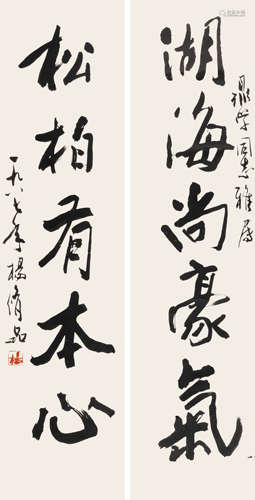 湖海尚豪氣
同志雅屬
松柏有本心
一九八七年楊脩品